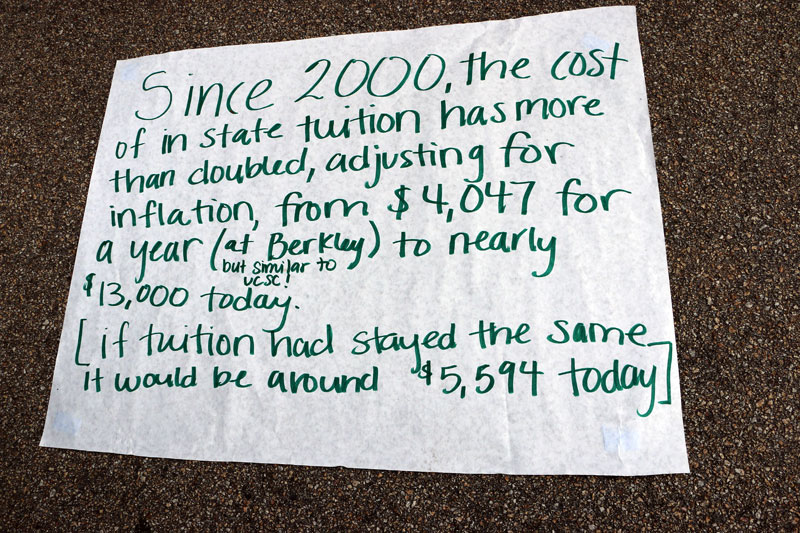 Since 2000, the cost
of in state tuition has more
than doubled, adjusting for
inflation, from $4,047 for
a year (at Berkley) to nearly
but similar to
UCSC!
$13,000 today.
[if tuition had stayed the same
it would be around $5,594 today]